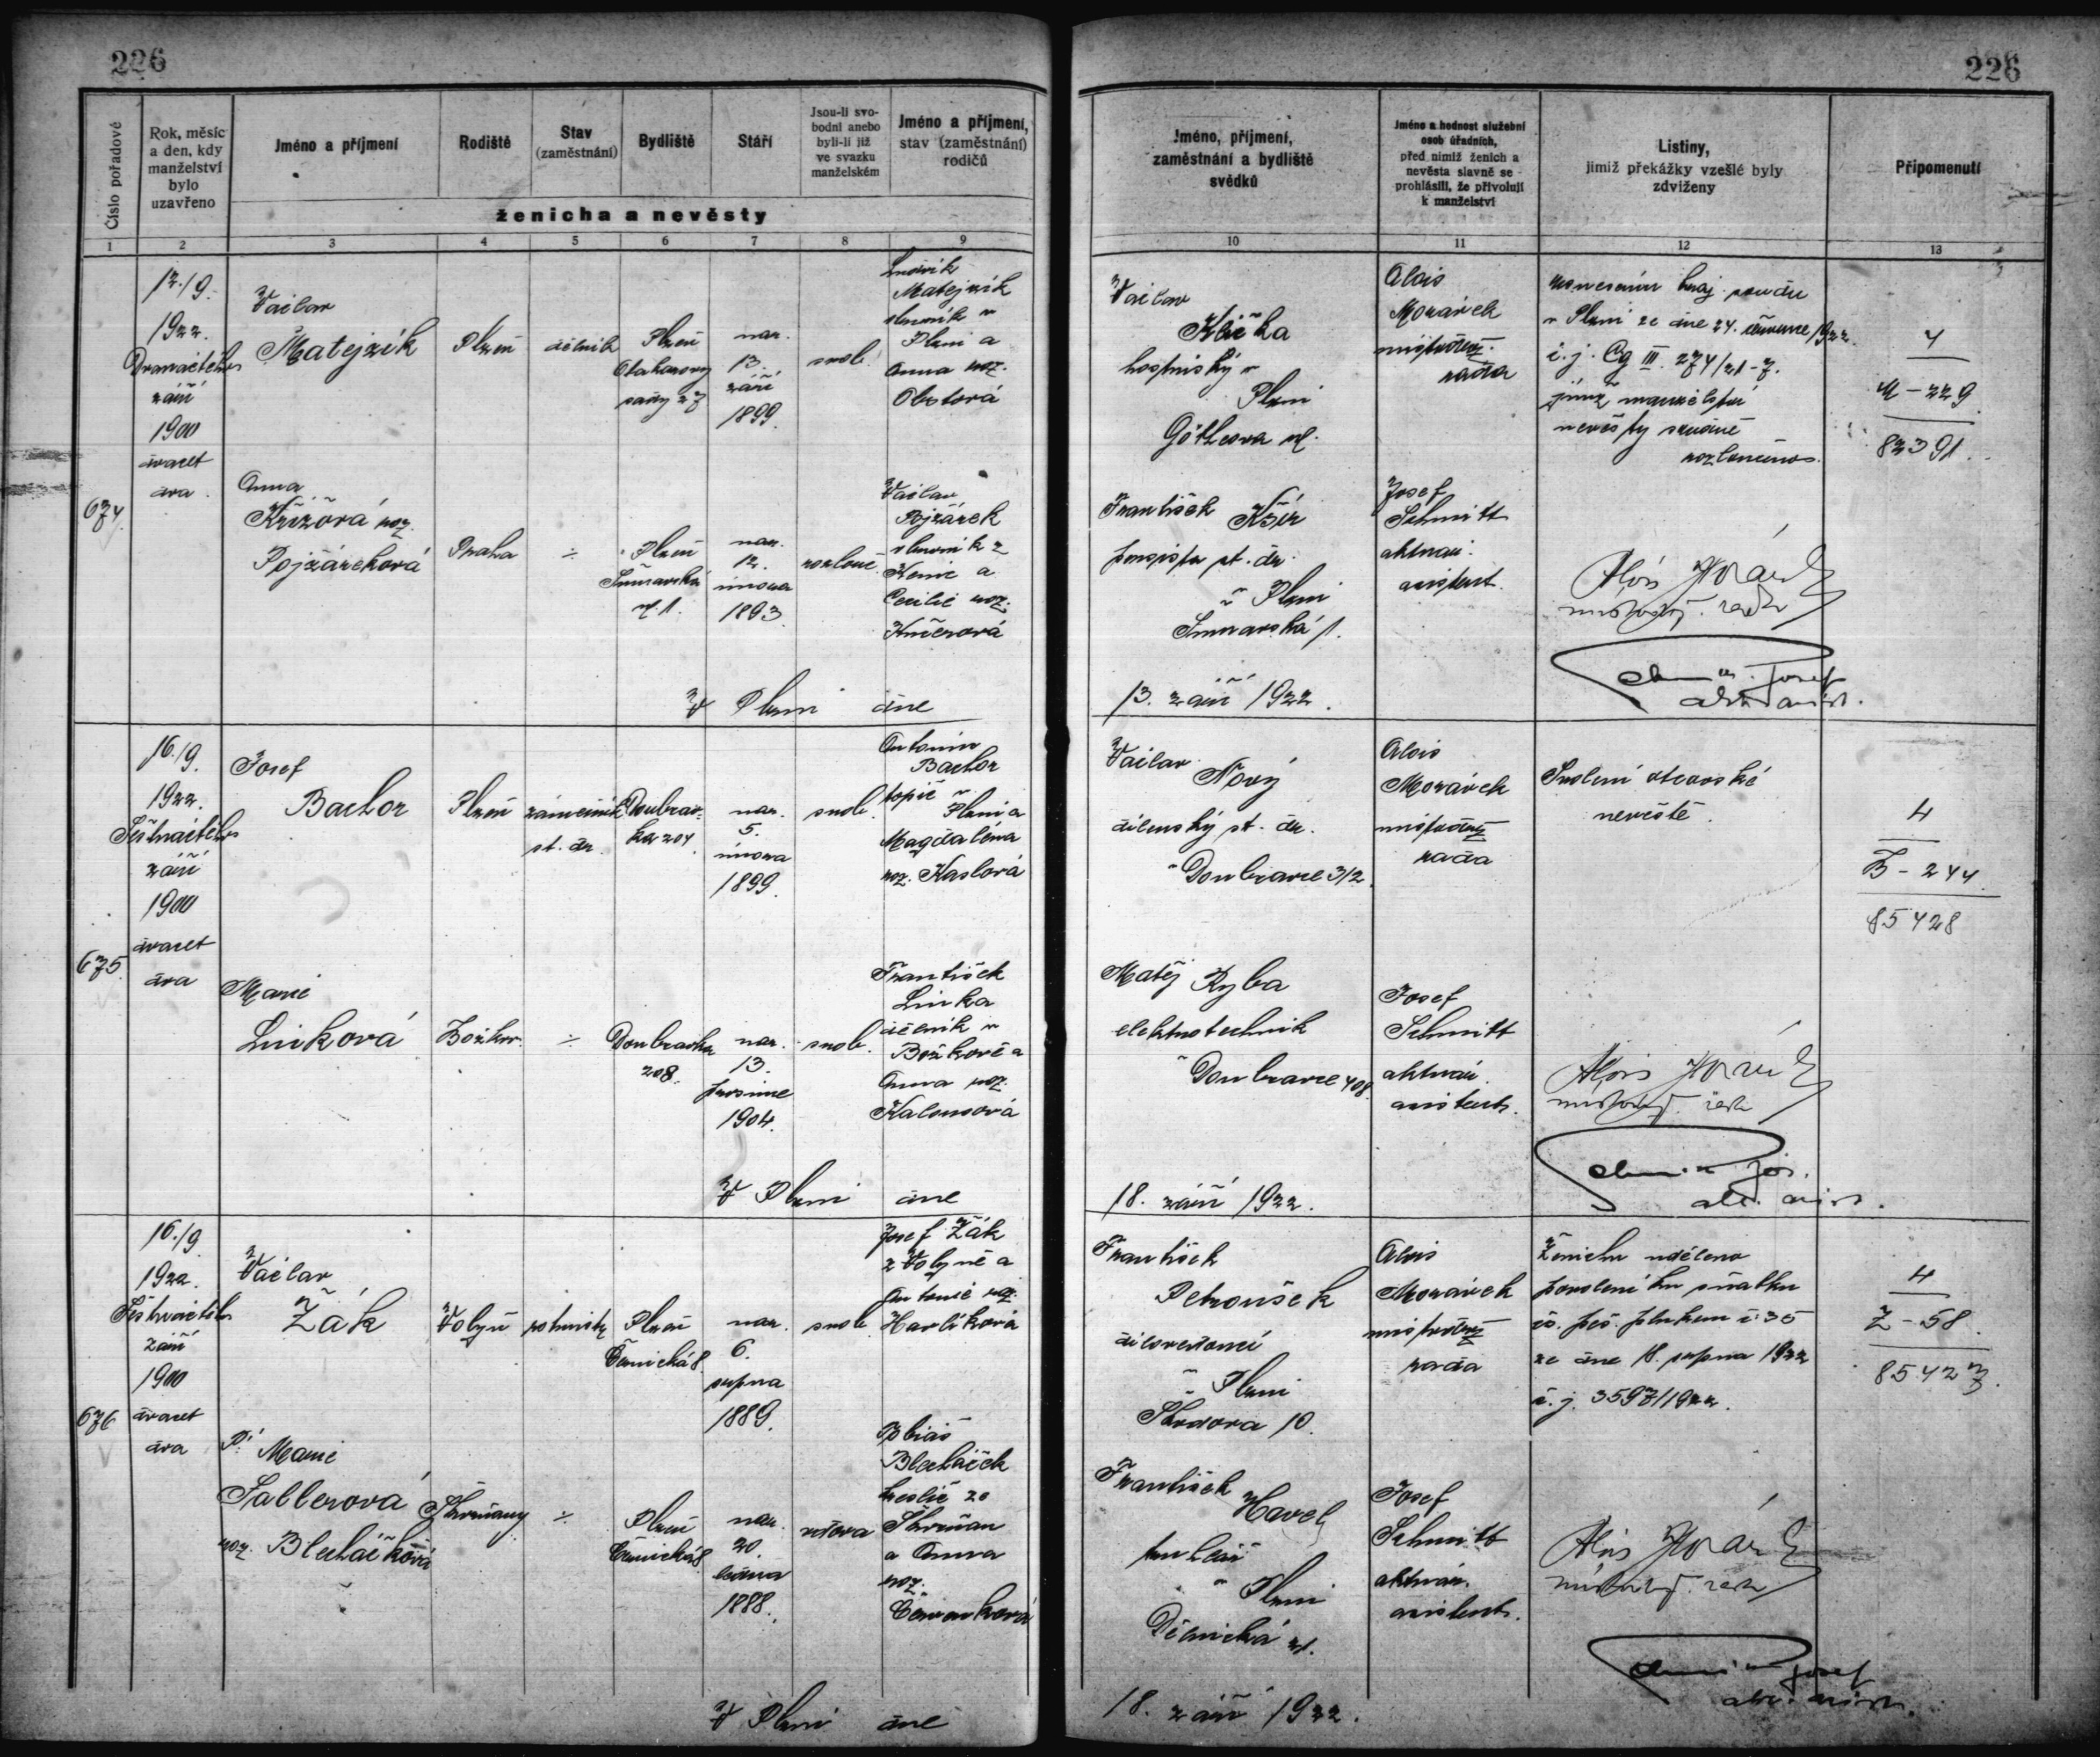 226
226
Číslo pořadové
Rok, měsíc
a den, kdy
manželství
bylo
uzavřeno
Jméno a příjmení
Rodiště
Stav
(zaměstnání)
Bydliště
Stáří
Jsou-li svo-
bodni anebo
byli-li již
ve svazku
manželském
Jméno a příjmení,
stav (zaměstnání)
rodičů
ženicha a nevěsty
Jméno, příjmení,
zaměstnání a bydliště
svědků
Jméno a hodnost služební
osob úřadních,
před nimiž ženich a
nevěsta slavně se
prohlásili, že přivolují
k manželství
Listiny,
jimiž překážky vzešlé byly
zdviženy
Připomenutí
1 2 3 4 5 6 7 8 9 10 11 12 13
674
12./9.
1922.
Dvanáctého
září
1900
dvacet
dva
Václav
Matejzík
Plzeň
dělník
Plzeň
Otakarovy
sady 27
nar.
13.
září
1899.
svob.
Ludvík
Matejzík
v
Plzni a
Anna roz.
Václav
Klička
hostinský v
Plzni
Götheova ul.
Alois
Morávek
místodrž.
rada
usnesením kraj. soudu
v Plzni ze dne 24. července 1922
č. j. Cg III. 274/21-7.
jímž manželství
nevěsty soudně
rozloučeno.
4
M-229
82391.
Anna
Křížová roz.
Pojžárková
Praha
÷
Plzeň
Šumavská
ul. 1.
nar.
12.
února
1893.
rozlouč.
Václav
Pojžárek
a
Cecilie roz.
Kučerová
František Kšír
st. dr.
v Plzni
Šumavská 1.
Josef
Schmitt
aktuár.
asistent.
Alois Morávek
místodrž. rada
Schmitt Josef
akt. asist.
V Plzni dne
13. září 1922.
675
16./9.
1922.
Šestnáctého
září
1900
dvacet
dva
Josef
Bachor
Plzeň
zámečník
st. dr.
Doubrav-
ka 204
nar.
5.
února
1899.
svob.
Antonín
Bachor
topič v
Plzni a
Magdaléna
roz. Kaslová
Václav
Nový
dílenský st. dr.
v Doubravce 312.
Alois
Morávek
místodrž.
rada
Svolení otcovské
nevěstě.
4
B-244
85428
Marie
Linková
Božkov.
÷
Doubravka
208.
nar.
13.
prosince
1904.
svob.
František
Linka
dělník v
Božkově a
Anna roz.
Kalousová
Matěj Ryba
elektrotechnik
v Doubravce 408.
Josef
Schmitt
aktuár.
asistent.
Alois Morávek
místodrž. rada
Schmitt Jos.
akt. asist.
V Plzni dne
18. září 1922.
676
16./9.
1922.
Šestnáctého
září
1900
dvacet
dva
Václav
Žák
Volyň
rotmistr
Plzeň
8
nar.
6.
srpna
1889.
svob.
Josef Žák
z Volyně a
Antonie roz.
Havlíková
František
Petroušek
dílovedoucí
v Plzni
Škodova 10.
Alois
Morávek
místodrž.
rada
Ženichu uděleno
povolení ku sňatku
čs. pěš. plukem č. 35
ze dne 18. srpna 1922
č. j. 3597/1922.
4
Ž-58.
85423.
Pí Marie
Sallerová
roz. Blecháčková
Skvrňany
÷
Plzeň
8
nar.
20.
ledna
1888.
vdova
Tobiáš
Blecháček
ze
Skvrňan
a Anna
roz.
František
Havel
truhlář
v Plzni
Dělnická ul.
Josef
Schmitt
aktuár.
asistent.
Alois Morávek
místodrž. rada
Schmitt Josef
akt. asist.
V Plzni dne
18. září 1922.